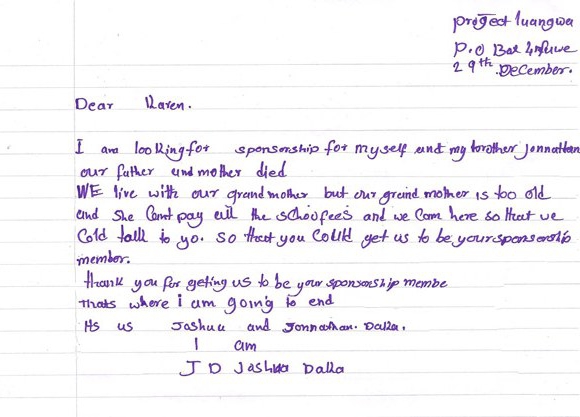 project luangwa
P.O Box Mfuwe
29th December.
Dear Karen.
I am looking for sponsorship for myself and my brother Jonnathan
our father and mother died
WE live with our grandmother but our greind mother is too old
and she cant pay all the schoofees and we came here so that we
Cold talk to yo. so that you could get us to be your sponsorship
member.
thank you for geting us to be your sponsorship membe
thats where i am going to end
Its us Joshua and Jonnathan. Dalla.
I am
J D Joshua Dalla